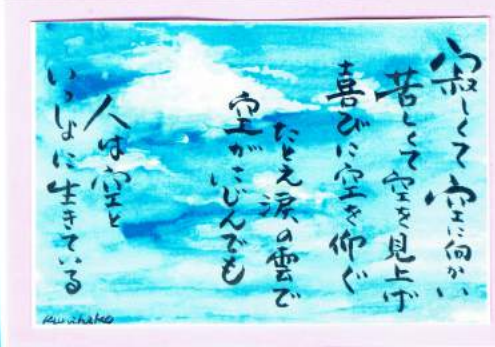 寂しくて空に向かい
苦しくて空を見上げ
喜びに空を仰ぐ
たとえ涙の雲で
空がにじんでも
人は空と
いっしょに生きている